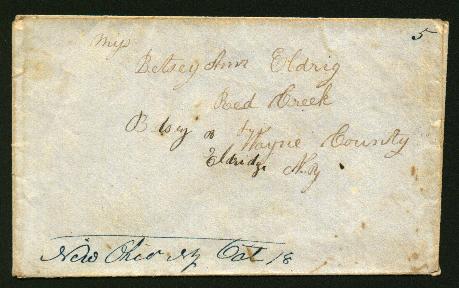 5
Miss
Betsey Ann Eldrig
Red Creek
Betsy a Wayne County
Eldridge N.Y
New Ohio NY Oct 18